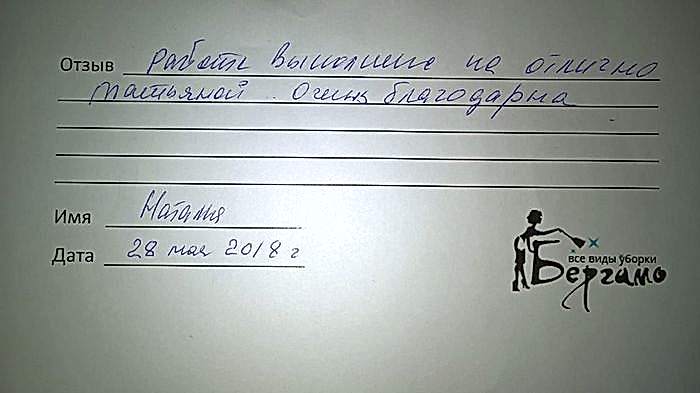 Отзыв работа выполнена на отлично
Татьяной. Очень благодарна
Имя Наталья
Дата 28 мая 2018 г
все виды уборки
Бергамо